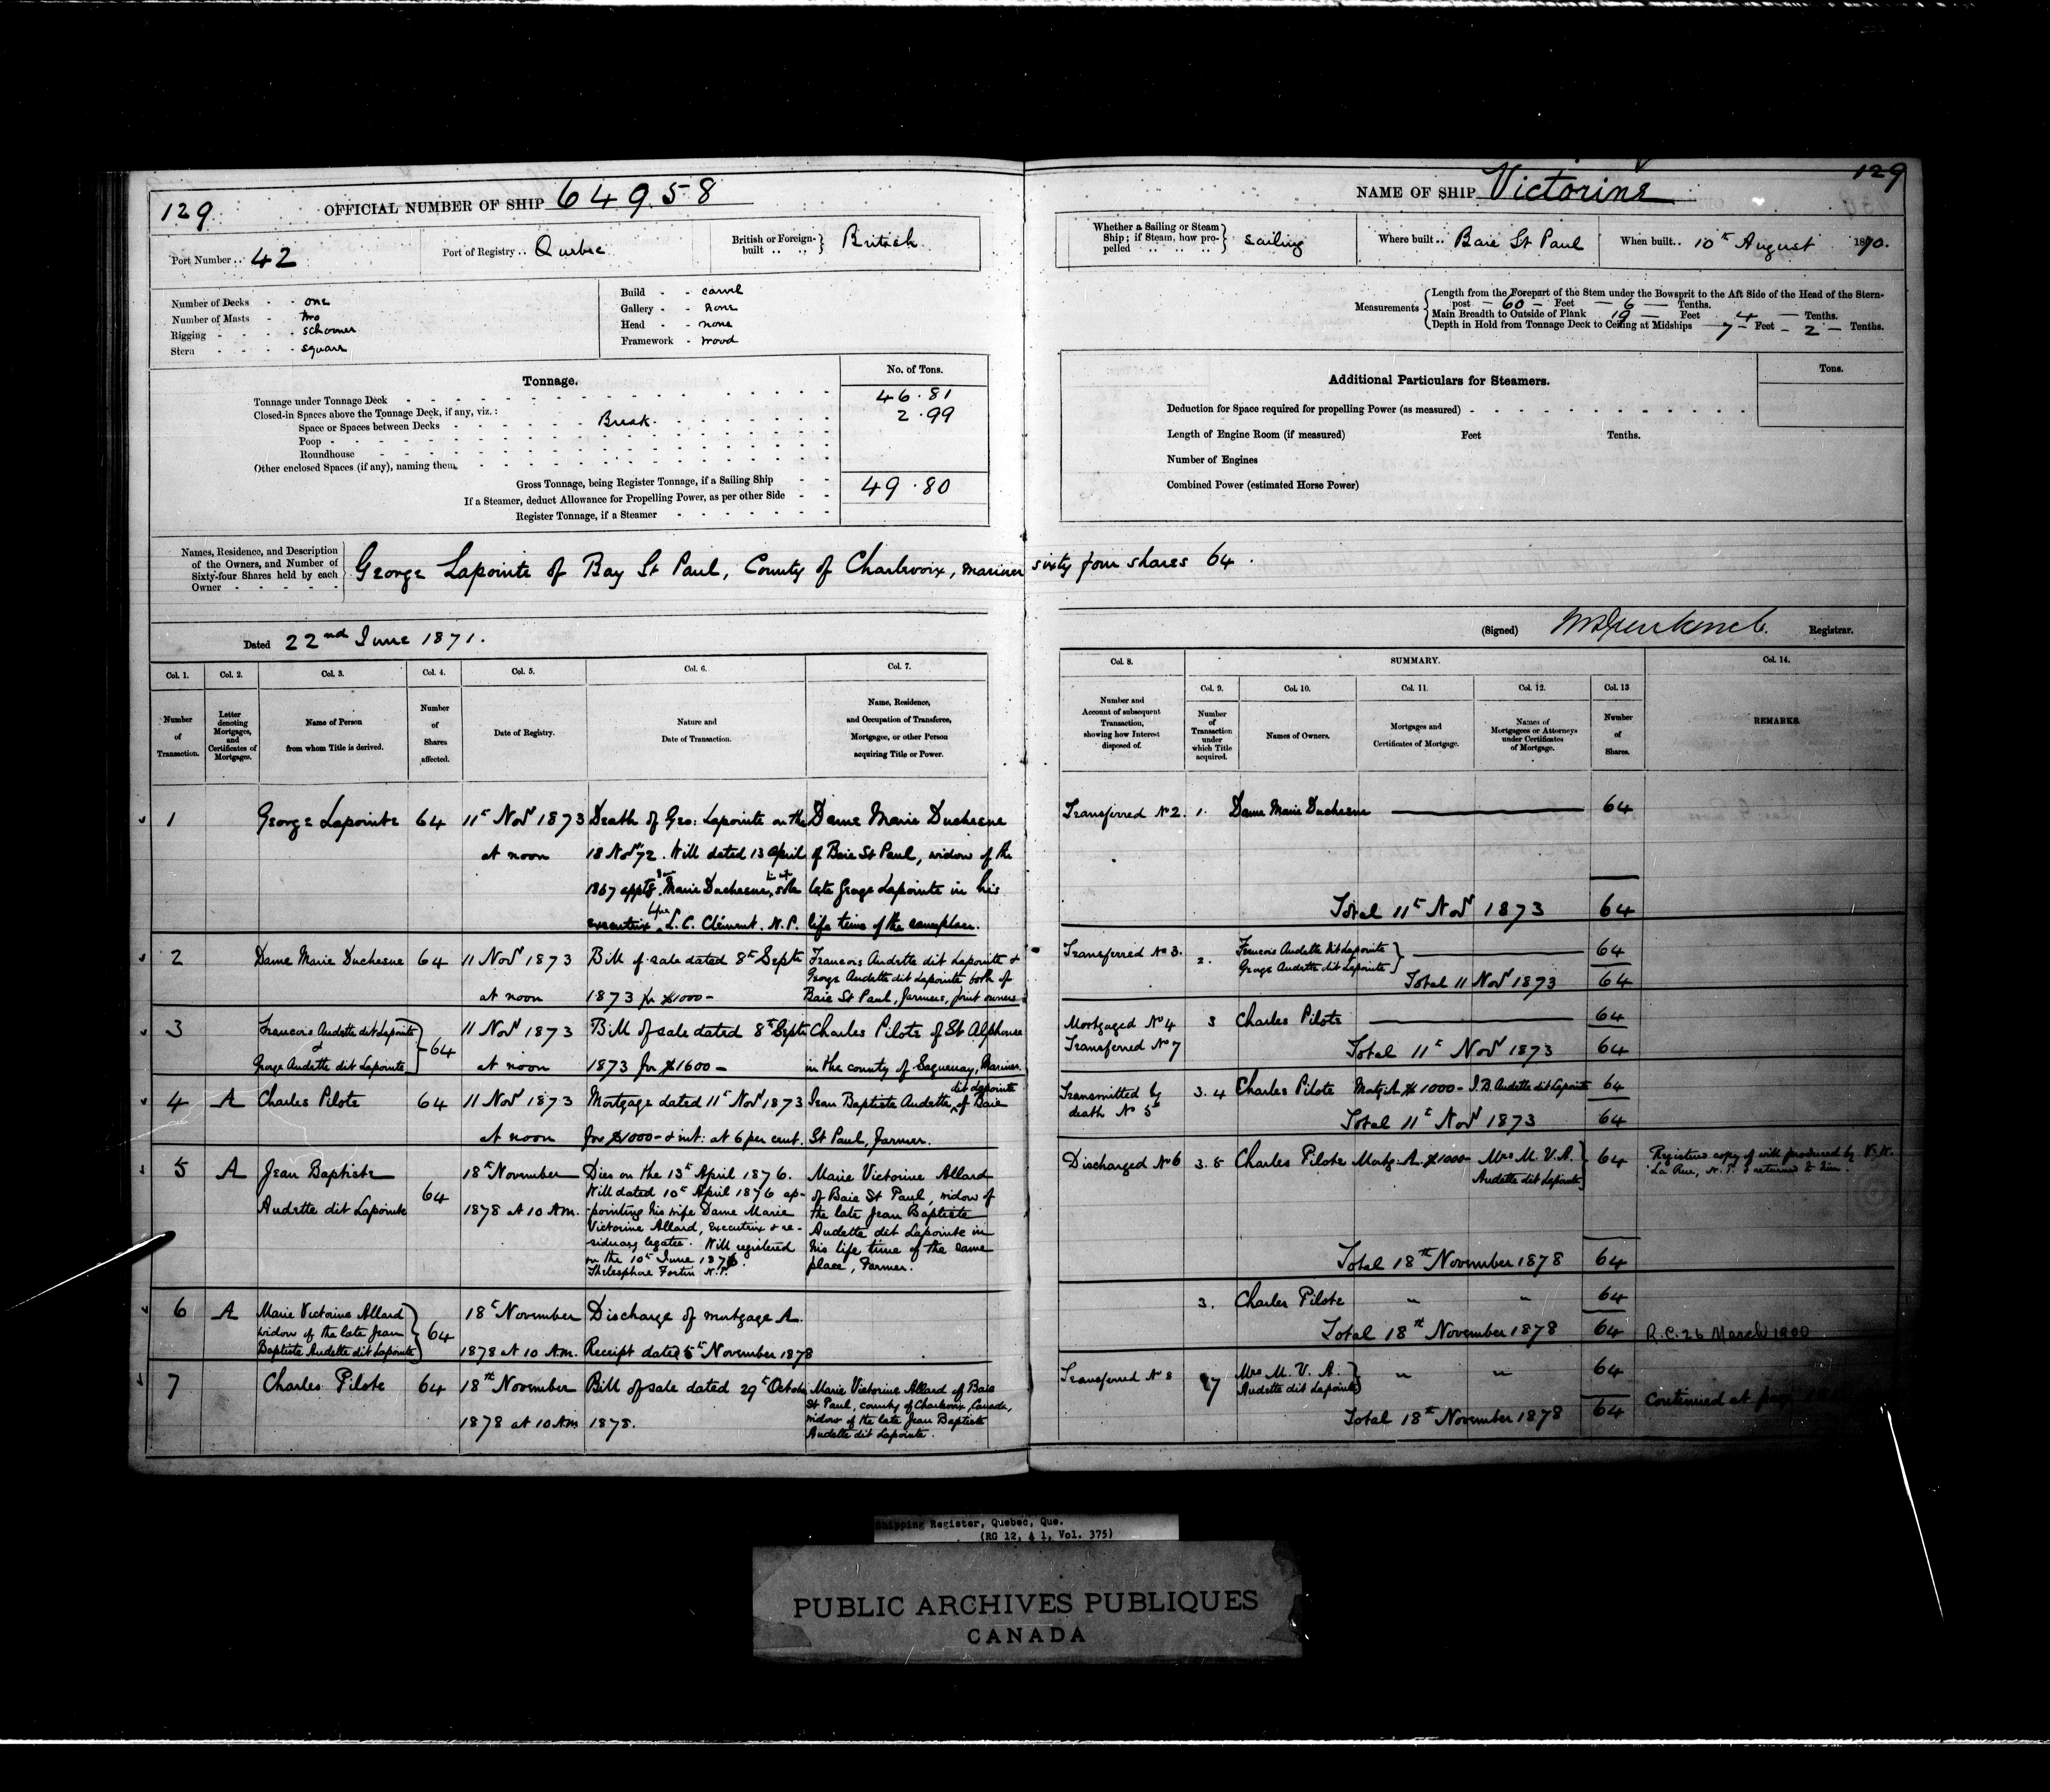 129
OFFICIAL NUMBER OF SHIP 64958
Port Number .. 42
Port of Registry .. Quebec
British or Foreign-built .. .. } British
Number of Decks - - one
Number of Masts - two
Rigging - - - - schooner
Stern - - - - square
Build - - carvel
Gallery - - none
Head - - none
Framework - wood
Tonnage.
No. of Tons.
Tonnage under Tonnage Deck 46.81
Closed-in Spaces above the Tonnage Deck, if any, viz.:
Space or Spaces between Decks Break. 2.99
Poop
Roundhouse
Other enclosed Spaces (if any), naming them
Gross Tonnage, being Register Tonnage, if a Sailing Ship 49.80
If a Steamer, deduct Allowance for Propelling Power, as per other Side
Register Tonnage, if a Steamer
129
NAME OF SHIP Victorine
Whether a Sailing or Steam Ship; if Steam, how propelled } sailing
Where built .. Baie St Paul
When built .. 10th August 1870.
Measurements
Length from the Forepart of the Stem under the Bowsprit to the Aft Side of the Head of the Stern-
post - 60 - Feet - 6 - Tenths.
Main Breadth to Outside of Plank 19 - Feet 4 - Tenths.
Depth in Hold from Tonnage Deck to Ceiling at Midships 7 - Feet - 2 - Tenths.
Additional Particulars for Steamers.
Tons.
Deduction for Space required for propelling Power (as measured)
Length of Engine Room (if measured) Feet Tenths.
Number of Engines
Combined Power (estimated Horse Power)
Names, Residence, and Description
of the Owners, and Number of
Sixty-four Shares held by each
Owner
George Lapointe of Bay St Paul, County of Charlevoix, mariner sixty four shares 64.
Dated 22nd June 1871.
(Signed) Registrar.
Col. 1. Col. 2. Col. 3. Col. 4. Col. 5. Col. 6. Col. 7.
Number of Transaction.
Letter denoting Mortgages, and Certificates of Mortgage.
Name of Person from whom Title is derived.
Number of Shares affected.
Date of Registry.
Nature and Date of Transaction.
Name, Residence, and Occupation of Transferee, Mortgagee, or other Person acquiring Title or Power.
Col. 8. SUMMARY. Col. 14.
Col. 9. Col. 10. Col. 11. Col. 12. Col. 13
Number and Account of subsequent Transaction, showing how Interest disposed of.
Number of Transaction under which Title acquired.
Names of Owners.
Mortgages and Certificates of Mortgage.
Names of Mortgagees or Attorneys under Certificates of Mortgage.
Number of Shares.
REMARKS.
1 George Lapointe 64 11th Novr 1873 at noon
Death of Geo: Lapointe on the
18 Novr 72. Will dated 13 April
1867 Marie Duchesne, sole
executrix L. C. Clément. N.P.
Dame Marie Duchesne
of Baie St Paul, widow of the
late George Lapointe in his
life time of the same place.
Transferred No 2. 1. Dame Marie Duchesne 64
Total 11th Novr 1873 64
2 Dame Marie Duchesne 64 11 Novr 1873 at noon
Bill of sale dated 8th Septr
1873 for $1000 -
Francois Audette dit Lapointe &
George Audette dit Lapointe both of
Baie St Paul, farmers, joint owners
Transferred No 3. 2. Francois Audette dit Lapointe
George Audette dit Lapointe } 64
Total 11 Novr 1873 64
3 Francois Audette dit Lapointe
&
George Audette dit Lapointe } 64 11 Novr 1873 at noon
Bill of sale dated 8th Septr
1873 for $1600 -
Charles Pilote of St Alphonse
in the county of Saguenay, Mariner.
Mortgaged No 4 3 Charles Pilote 64
Transferred No 7 Total 11th Novr 1873 64
4 A Charles Pilote 64 11 Novr 1873 at noon
Mortgage dated 11th Novr 1873
for $1000 - & int: at 6 per cent.
Jean Baptiste Audette dit Lapointe, of Baie
St Paul, farmer.
Transmitted by
death No 5
3. 4 Charles Pilote Mortg: A $1000 - J.B. Audette dit Lapointe 64
Total 11th Novr 1873 64
5 A Jean Baptiste
Audette dit Lapointe 64 18th November
1878 at 10 A.M.
Dies on the 13th April 1876.
Will dated 10th April 1876 ap-
-pointing his wife Dame Marie
Victorine Allard, executrix & re-
-siduary legatee. Will registered
on the 10th June 1876.
Thelesphore Fortin N.P.
Marie Victorine Allard
of Baie St Paul, widow of
the late Jean Baptiste
Audette dit Lapointe in
his life time of the same
place, Farmer.
Discharged No 6 3. 5 Charles Pilote Mortg: A. $1000 - Mrs M. V. A.
Audette dit Lapointe } 64
Registered copy of will produced by
La Rue, N.P. & returned to him.
Total 18th November 1878 64
6 A Marie Victorine Allard
widow of the late Jean
Baptiste Audette dit Lapointe } 64 18th November
1878 at 10 A.M.
Discharge of mortgage A.
Receipt dated 5th November 1878
3. Charles Pilote " " 64
Total 18th November 1878 64
R.C. 26 March 1900
7 Charles Pilote 64 18th November
1878 at 10 A.M
Bill of sale dated 29th October
1878.
Marie Victorine Allard of Baie
St Paul, county of Charlevoix, Canada,
widow of the late Jean Baptiste
Audette dit Lapointe.
Transferred No 8 7 Mrs M. V. A.
Audette dit Lapointe } " " 64
Total 18th November 1878 64
Continued at page
Shipping Register, Quebec, Que.
(RG 12, A 1, Vol. 375)
PUBLIC ARCHIVES PUBLIQUES
CANADA